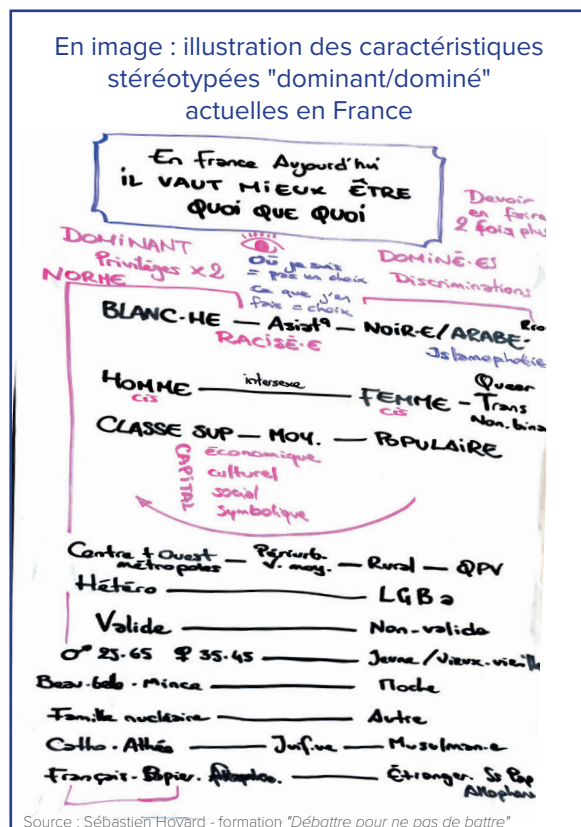 En image : illustration des caractéristiques
stéréotypées "dominant/dominé"
actuelles en France
En France Aujourd'hui
IL VAUT MIEUX ÊTRE
QUOI QUE QUOI
Devoir
en faire
2 fois plus
DOMINANT
Privilèges x 2
NORME
Où je suis
= pas un choix
Ce que j'en
fais = choix
DOMINÉ·ES
Discriminations
BLANC·HE — Asiat — NOIR·E/ARABE
RACISÉ·E
Islamophobie
HOMME — intersexe — FEMME - Queer
cis cis Trans
Non.bina
CLASSE SUP — MOY. — POPULAIRE
CAPITAL
économique
culturel
social
symbolique
Centre + Ouest métropoles — Périurb. V. moy. — Rural — QPV
Hétéro — LGB
Valide — Non-valide
♂ 25-65 ♀ 35-45 — Jeune/Vieux-vieille
Beau-belle - Mince — Moche
Famille nucléaire — Autre
Catho - Athée — Juif·ve — Musulman·e
Français - Papier. — Étranger. Ss Pap
Allophone
Source : Sébastien Hovard - formation "Débattre pour ne pas de battre"